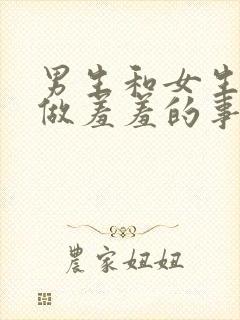 男生和女生
做羞羞的事
農家妞妞